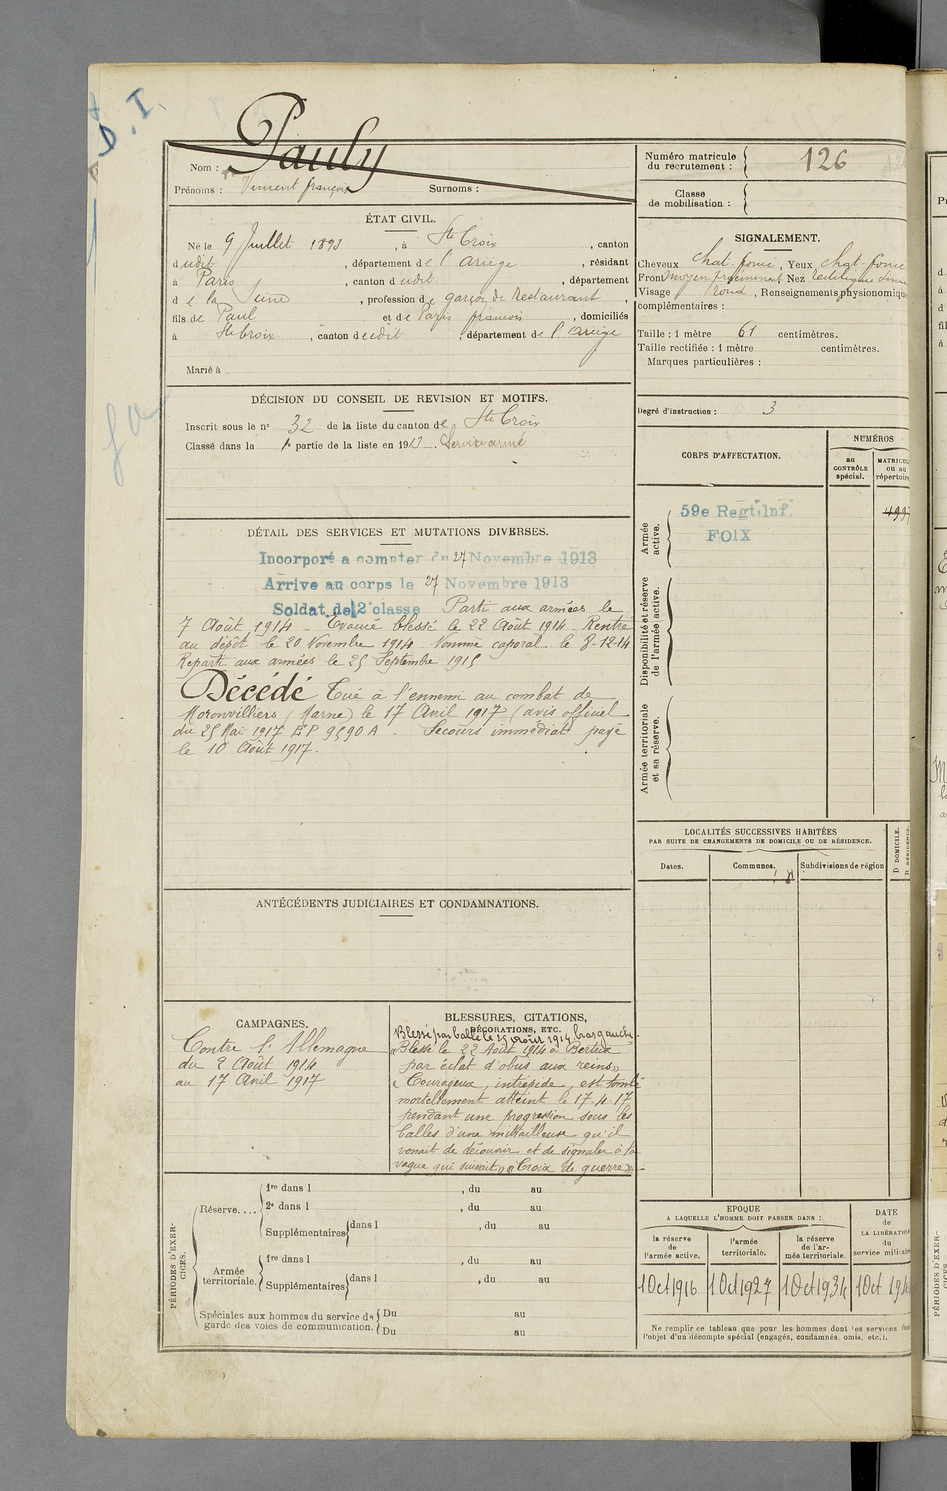 D. I.
Nom : Pauly
Prénoms : Vincent françois Surnoms :
Numéro matricule du recrutement : 126
Classe de mobilisation :
ÉTAT CIVIL.
Né le 9 Juillet 1893, à Ste Croix, canton
dudit, département de l'Ariège, résidant
à Paris, canton dudit, département
de la Seine, profession de garçon de Restaurant,
fils de Paul et de Pagès françoise, domiciliés
à Ste Croix, canton dudit, département de l'Ariège
Marié à
SIGNALEMENT.
Cheveux chat. foncé, Yeux chat. foncé
Front moyen Nez rectiligne
Visage rond, Renseignements physionomiques
complémentaires :
Taille : 1 mètre 61 centimètres.
Taille rectifiée : 1 mètre centimètres.
Marques particulières :
Degré d'instruction : 3
DÉCISION DU CONSEIL DE REVISION ET MOTIFS.
Inscrit sous le n° 32 de la liste du canton de Ste Croix
Classé dans la 1e partie de la liste en 1913. Service armé
CORPS D'AFFECTATION.
NUMÉROS
au CONTRÔLE spécial.
MATRICULE ou au répertoire
Armée active.
59e Regt. Inf.
FOIX
Disponibilité et réserve de l'armée active.
Armée territoriale et sa réserve.
DÉTAIL DES SERVICES ET MUTATIONS DIVERSES.
Incorporé a compter du 27 Novembre 1913
Arrive au corps le 27 Novembre 1913
Soldat de 2e classe Parti aux armées le
7 Août 1914 - Evacué blessé le 22 Août 1914 - Rentré
au dépôt le 20 Novembre 1914. Nommé caporal le 8-12-14
Reparti aux armées le 25 Septembre 1915
Décédé Tué à l'ennemi au combat de
Moronvilliers (Marne) le 17 Avril 1917 (avis officiel
du 25 Mai 1917 EP 9590 A - Secours immédiat payé
le 10 Août 1917.
LOCALITÉS SUCCESSIVES HABITÉES
PAR SUITE DE CHANGEMENTS DE DOMICILE OU DE RÉSIDENCE.
Dates. Communes. Subdivisions de région
D DOMICILE.
R RÉSIDENCE.
ANTÉCÉDENTS JUDICIAIRES ET CONDAMNATIONS.
CAMPAGNES.
Contre l'Allemagne
du 2 Août 1914
au 17 Avril 1917
BLESSURES, CITATIONS,
DÉCORATIONS, ETC.
Blessé par balle le Août 1914 bras gauche
"Blessé le 22 Août 1914 à Bertrix
par éclat d'obus aux reins"
"Courageux, intrépide, est tombé
mortellement atteint le 17.4.17
pendant une progression sous les
balles d'une mitrailleuse qu'il
venait de découvrir et de signaler à la
vague qui suivait" "Croix de guerre"
PÉRIODES D'EXERCICES.
Réserve....
1re dans l , du au
2e dans l , du au
Supplémentaires dans l , du au
Armée territoriale.
1re dans l , du au
Supplémentaires dans l , du au
Spéciales aux hommes du service de Du au
garde des voies de communication. Du au
ÉPOQUE
A LAQUELLE L'HOMME DOIT PASSER DANS :
la réserve de l'armée active.
l'armée territoriale.
la réserve de l'armée territoriale.
DATE DE LA LIBÉRATION du service militaire
1 Oct 1916 1 Oct 1927 1 Oct 1934 1 Oct 194
Ne remplir ce tableau que pour les hommes dont les services font
l'objet d'un décompte spécial (engagés, condamnés, omis, etc.).